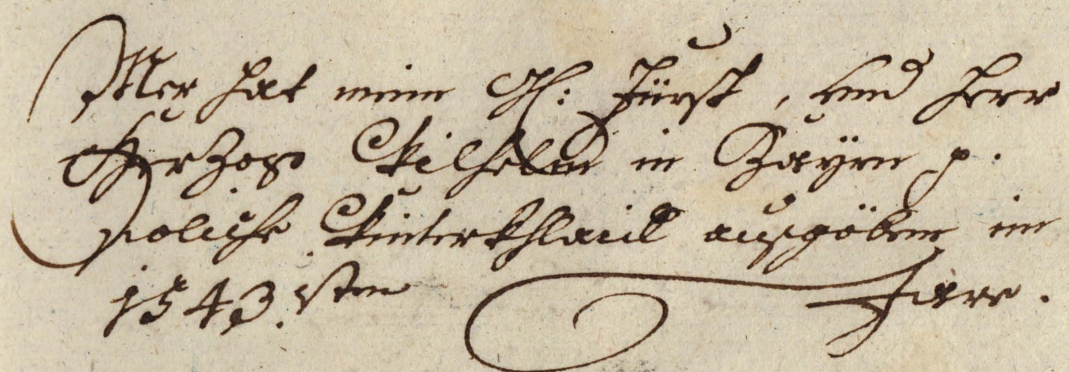 Mer hat mein G: Fürst, und Herr
Herzog Wilhelm in Bayrn p.
soliche Winterkhlaid ausgöben im
1543.isten Jare.